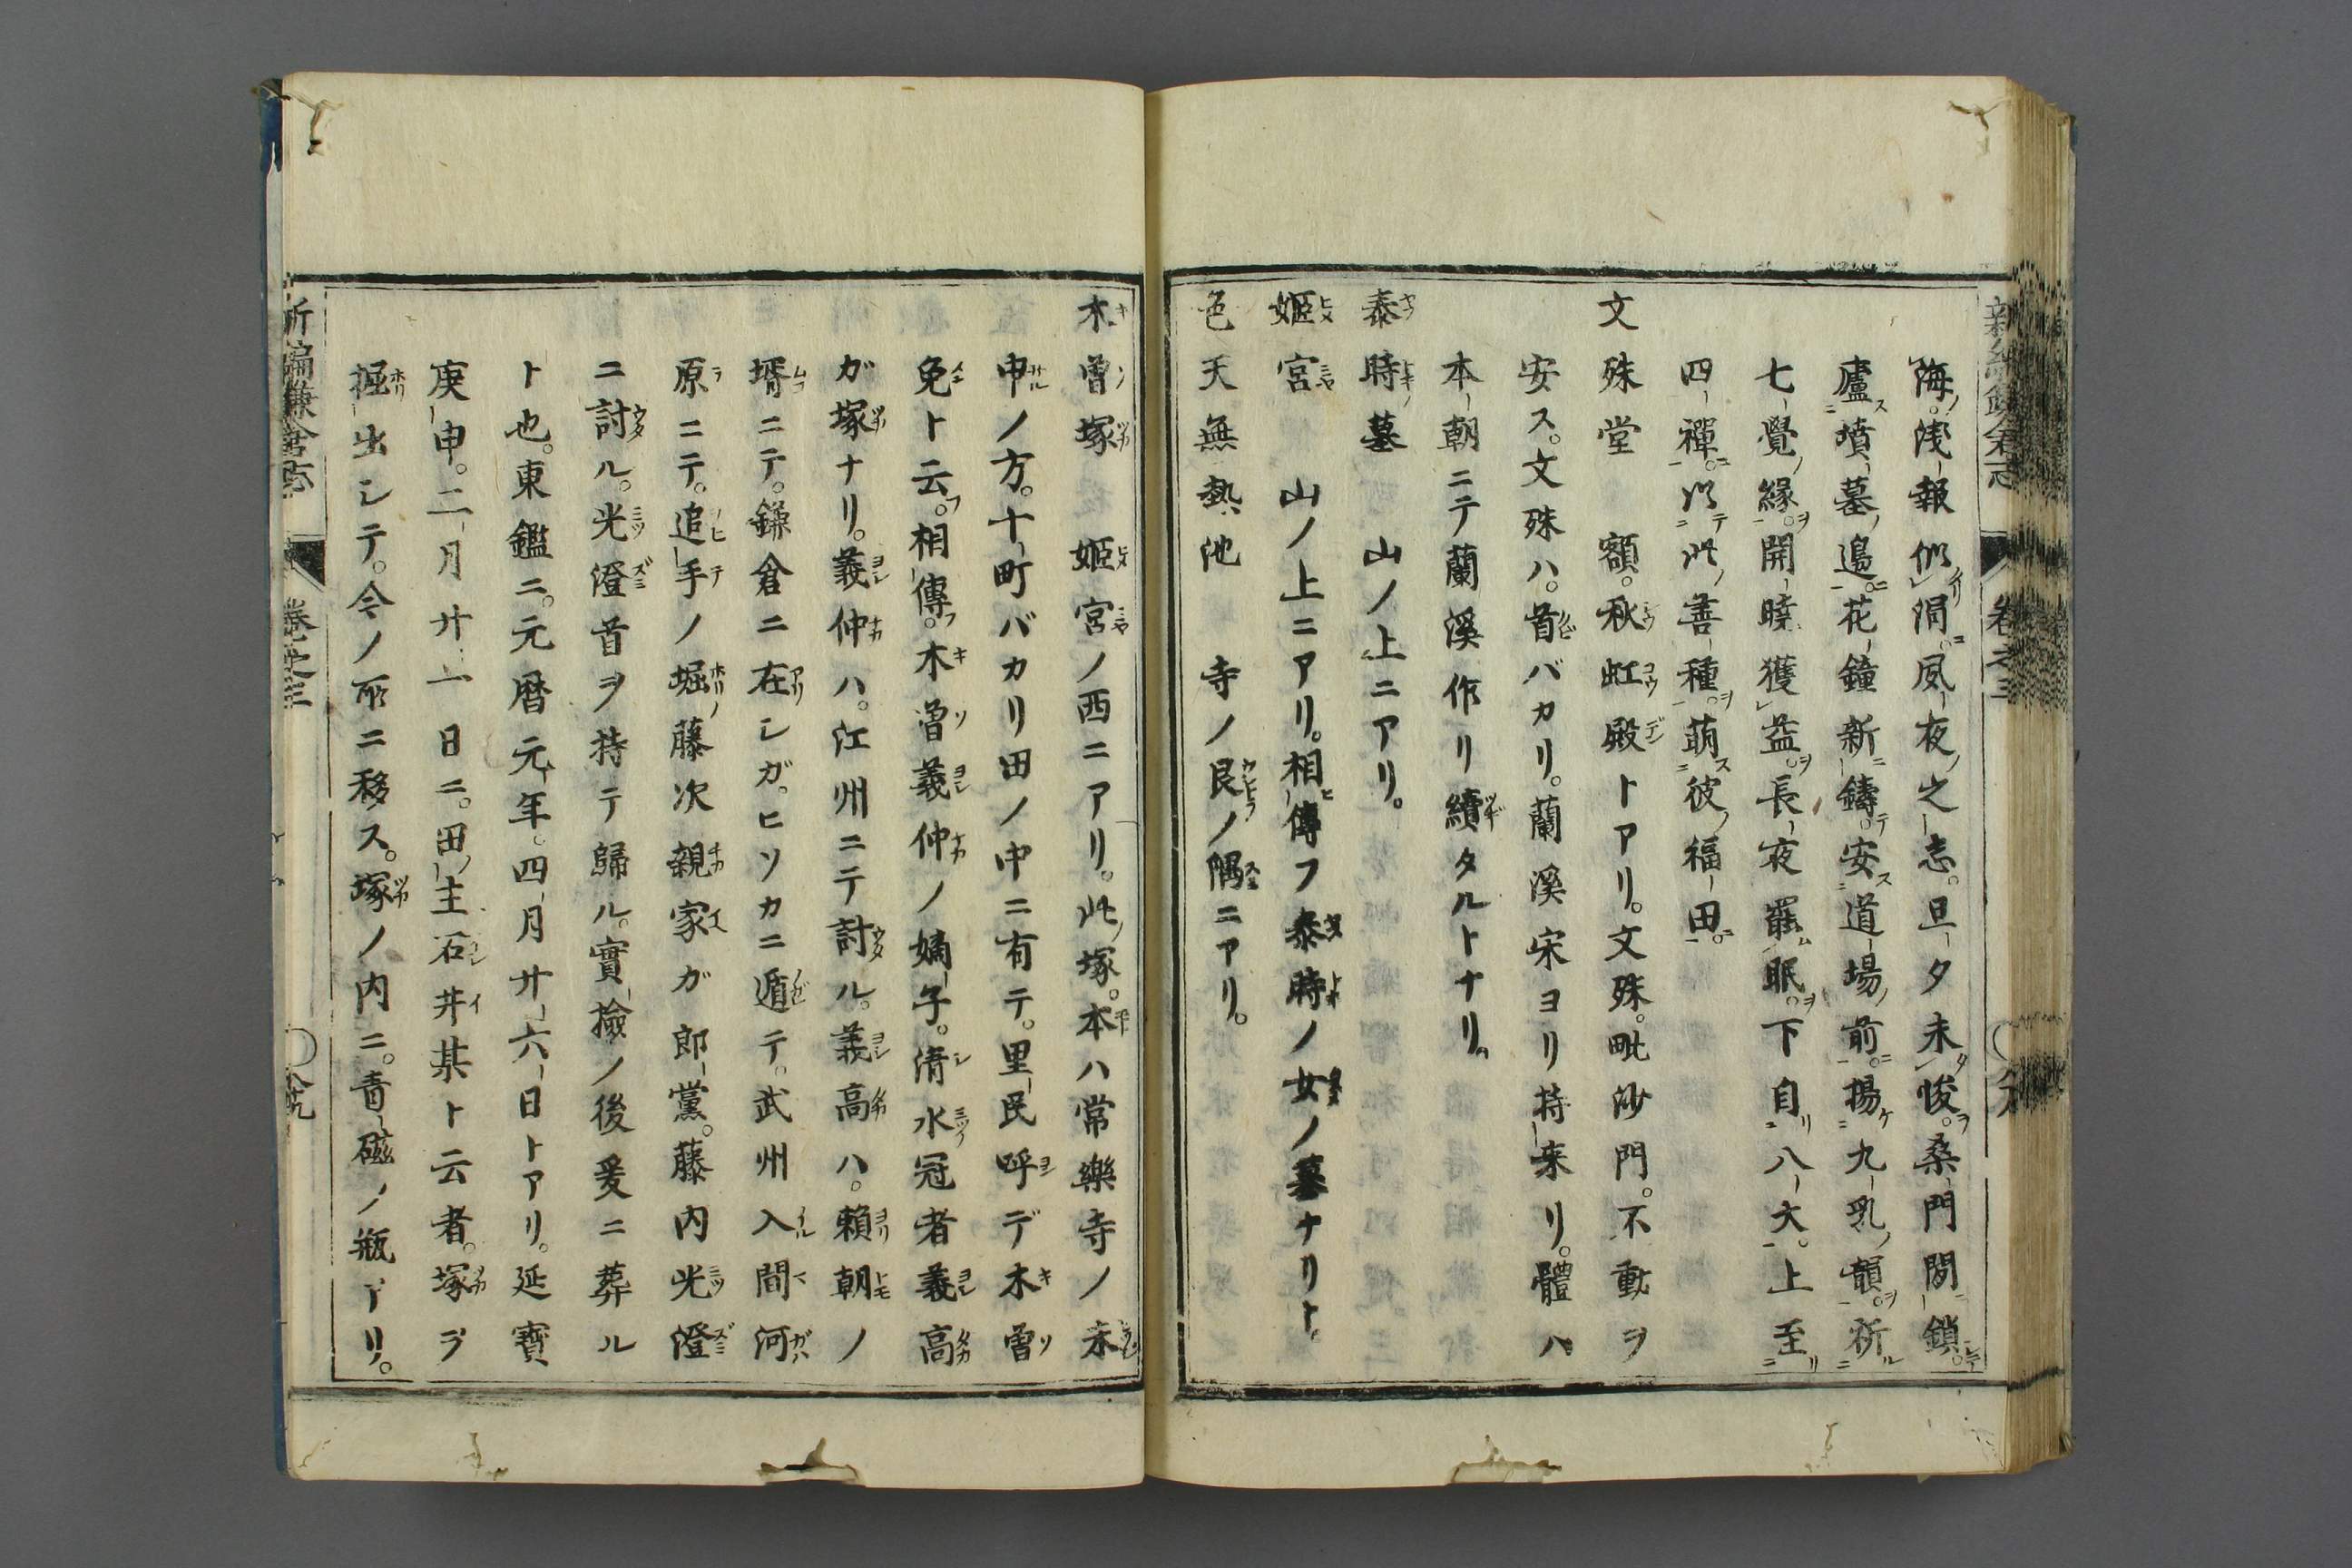 海。浅報似涓。夙夜之志。旦夕未悛。桑門閴鎖。
廬墳墓邉。花鐘新鑄。安道場前。揚九乳韻。祈
七覺縁。開曉獲益。長夜罷眠。下自八大。上至
四禪。以此善種。萌彼福田。
文殊堂　額。秋虹殿トアリ。文殊。毗沙門。不動ヲ
安ス。文殊ハ。首バカリ。蘭溪宋ヨリ持来リ。體ハ
本朝ニテ蘭溪作リ續タルトナリ。
泰時墓　山ノ上ニアリ。
姫宮　山ノ上ニアリ。相傳フ泰時ノ女ノ墓ナリト。
色天無熱池　寺ノ艮ノ隅ニアリ。
木曽塚　姫宮ノ西ニアリ。此塚。本ハ常樂寺ノ未
申ノ方。十町バカリ田ノ中ニ有テ。里民呼デ木曽
免ト云。相傳。木曽義仲ノ嫡子。清水冠者義高
ガ塚ナリ。義仲ハ。江州ニテ討ル。義高ハ。賴朝ノ
壻ニテ。鎌倉ニ在シガ。ヒソカニ遁テ。武州入間河
原ニテ。追手ノ堀藤次親家ガ郎黨。藤内光澄
ニ討ル。光澄首ヲ持テ歸ル。實撿ノ後爰ニ葬ル
ト也。東鑑ニ。元暦元年。四月廿六日トアリ。延寶
庚申。二月廿一日ニ。田主石井某ト云者。塚ヲ
掘出シテ。今ノ所ニ移ス。塚ノ内ニ。青磁ノ瓶アリ。
新編鎌倉志　巻之三